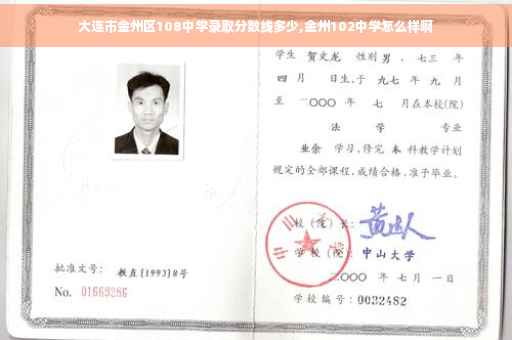 大连市金州区108中学录取分数线多少,金州102中学怎么样啊
学生 贺文龙 性别 男 、七三 年
四 月 日生,于 九七 年 九 月
至 二〇〇〇 年 七 月在本校(院)
法 学 专业
业余 学习,修完 本 科教学计划
规定的全部课程,成绩合格,准予毕业。
校(院)长:
学校(院): 中山大学
二〇〇〇 年 七 月 一 日
学校编号:0032482
批准文号: 教直[1993]8号
No. 01669286